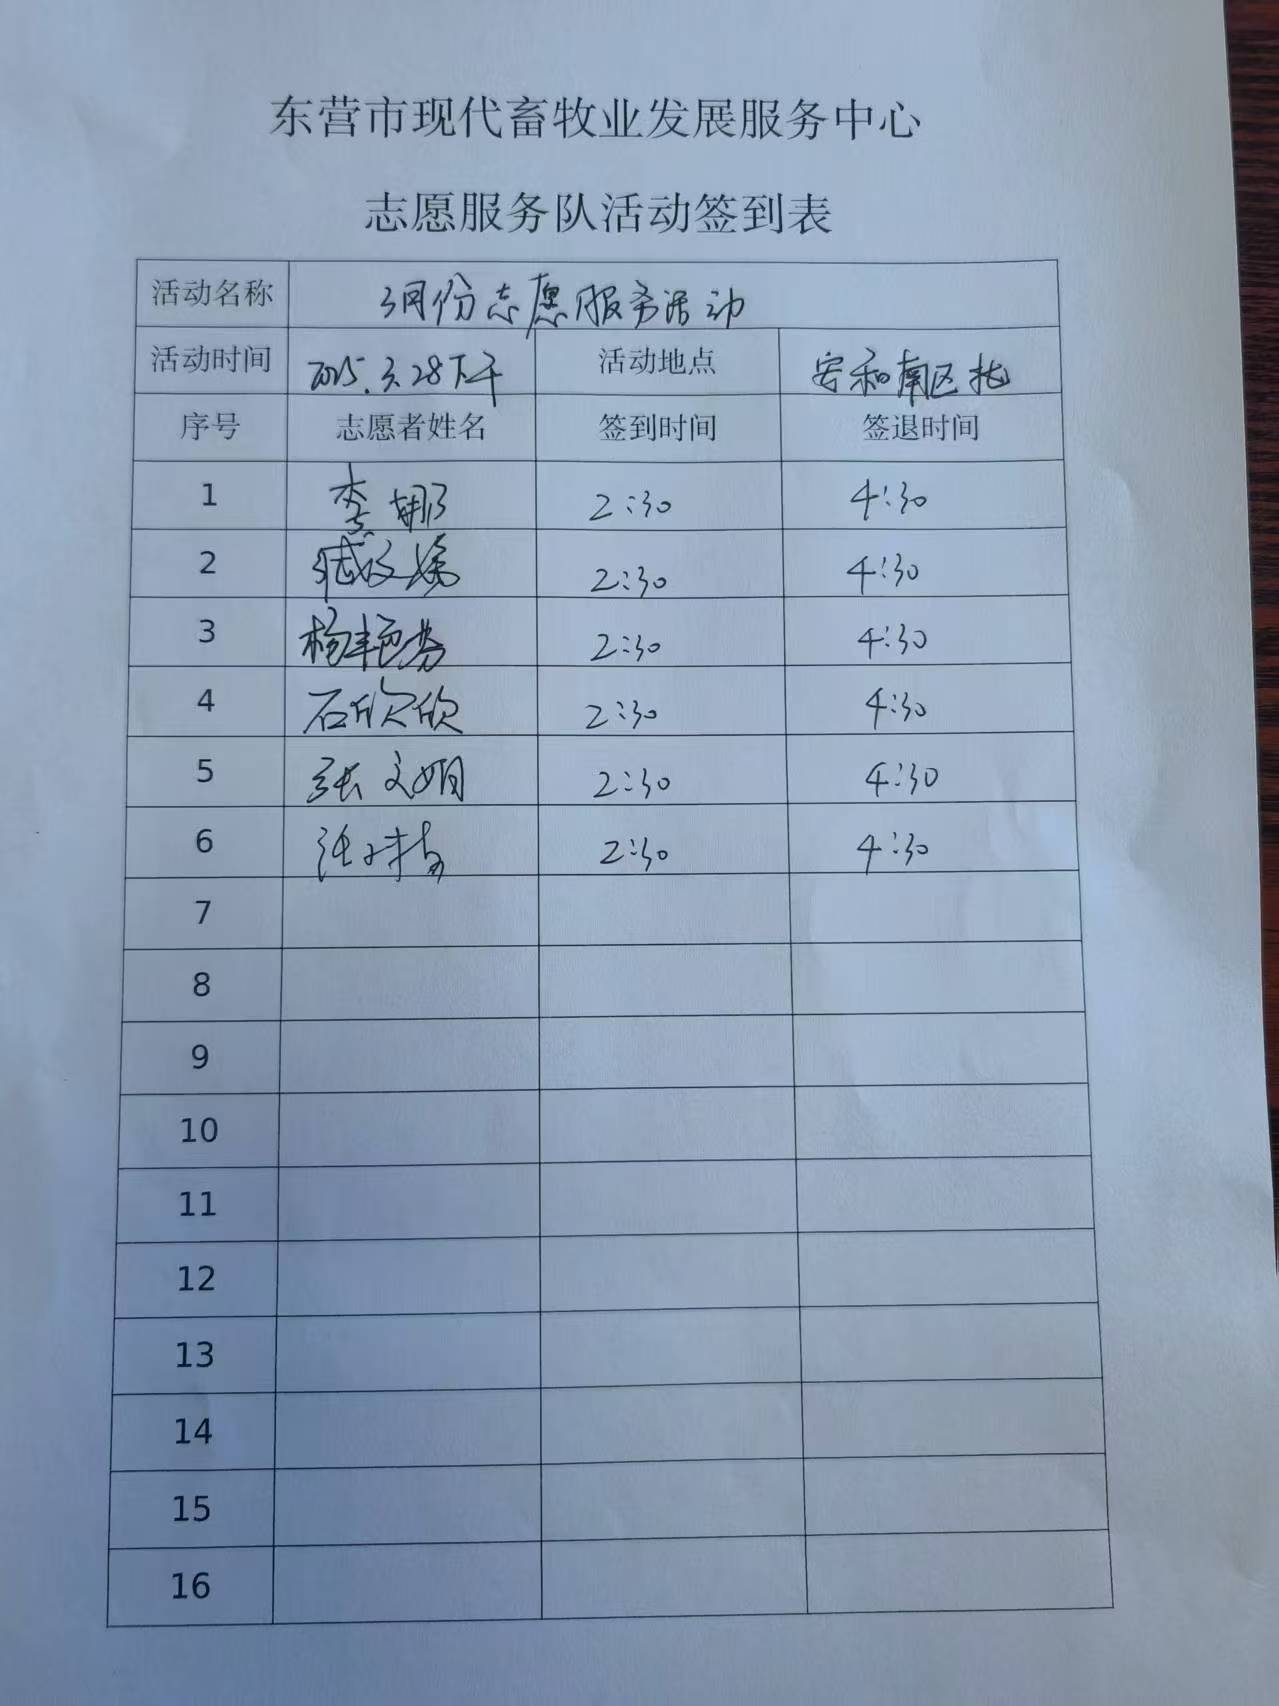 东营市现代畜牧业发展服务中心
志愿服务队活动签到表
活动名称 3月份志愿服务活动
活动时间 2025.3.28下午 活动地点 安和南区北
序号 志愿者姓名 签到时间 签退时间
1 李娜 2:30 4:30
2 2:30 4:30
3 杨艳芬 2:30 4:30
4 石欣欣 2:30 4:30
5 张文娟 2:30 4:30
6 2:30 4:30
7
8
9
10
11
12
13
14
15
16